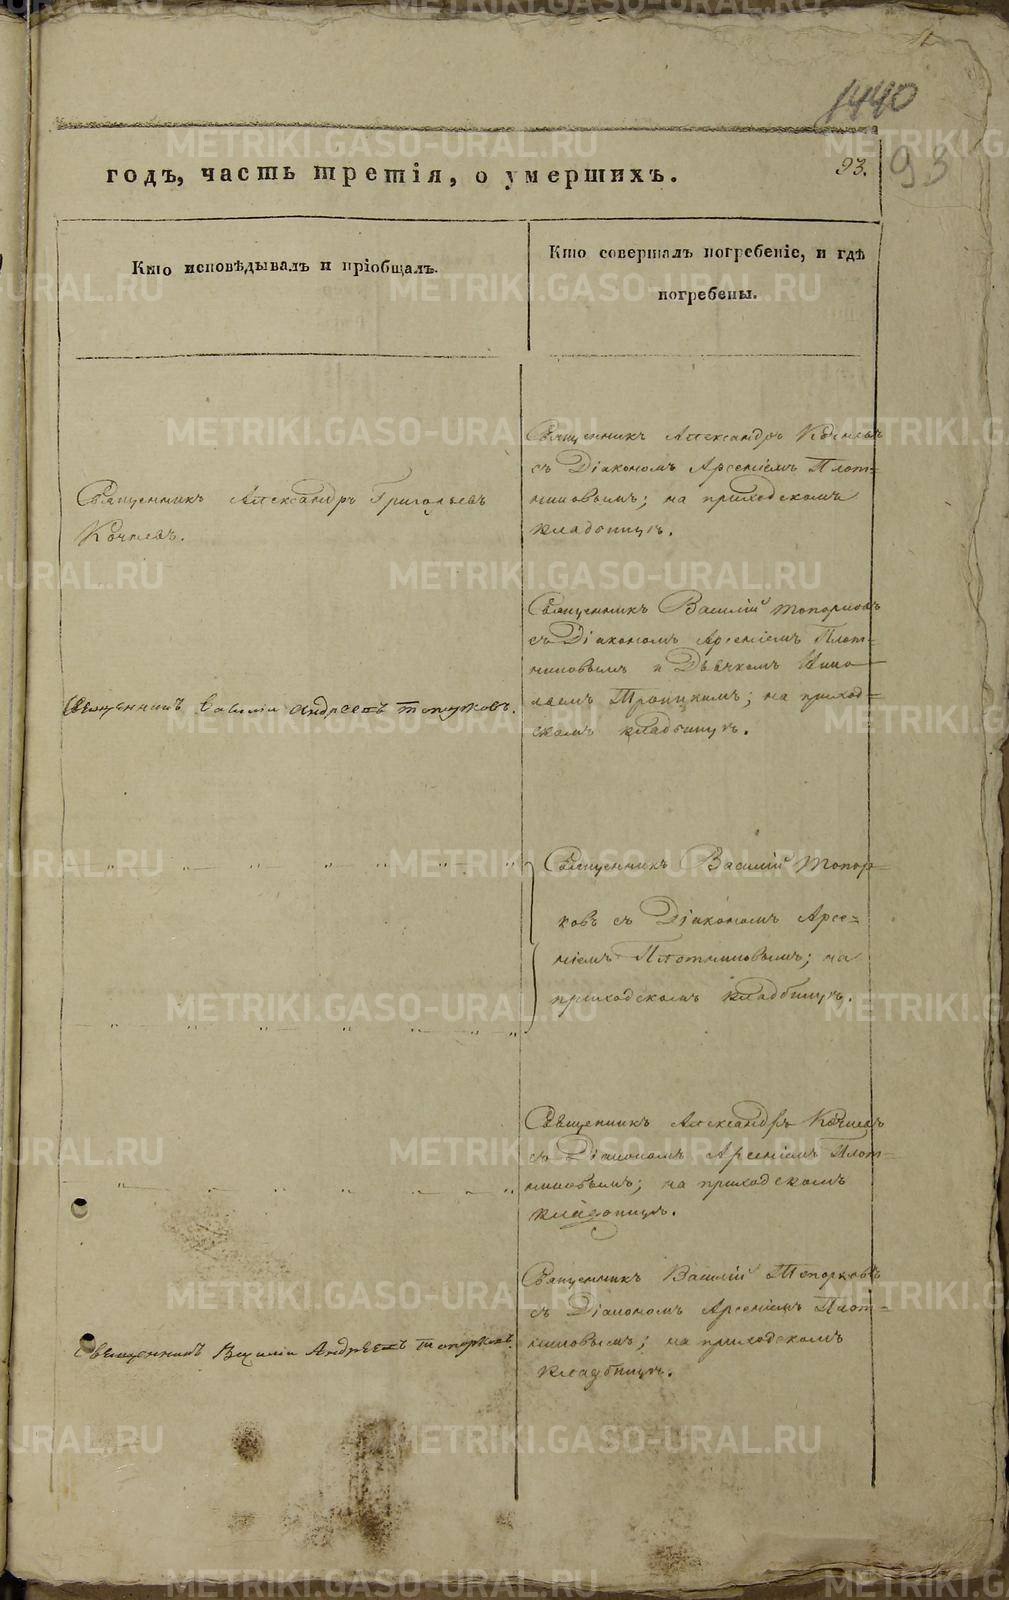 1440
93.
93
годъ, часть третія, о умершихъ.
Кто исповѣдывалъ и пріобщалъ.
Кто совершалъ погребеніе, и гдѣ
погребены.
Священникъ Александръ Григорьевъ
Кочневъ.
Священникъ Александръ Кочневъ
съ Діакономъ Арсеніемъ Плот-
никовымъ; на приходскомъ
кладбищѣ.
Священникъ Василій Андреевъ Топорковъ.
Священникъ Василій Топорковъ
съ Діакономъ Арсеніемъ Плот-
никовымъ и Дьячкомъ Нико-
лаемъ Троицкимъ; на приход-
скомъ кладбищѣ.
Священникъ Василій Топор-
ковъ съ Діакономъ Арсе-
ніемъ Плотниковымъ; на
приходскомъ кладбищѣ.
Священникъ Александръ Кочневъ
съ Діакономъ Арсеніемъ Плот-
никовымъ; на приходскомъ
кладбищѣ.
Священникъ Василій Андреевъ Топорковъ.
Священникъ Василій Топорковъ
съ Діакономъ Арсеніемъ Плот-
никовымъ; на приходскомъ
кладбищѣ.
METRIKI.GASO-URAL.RU